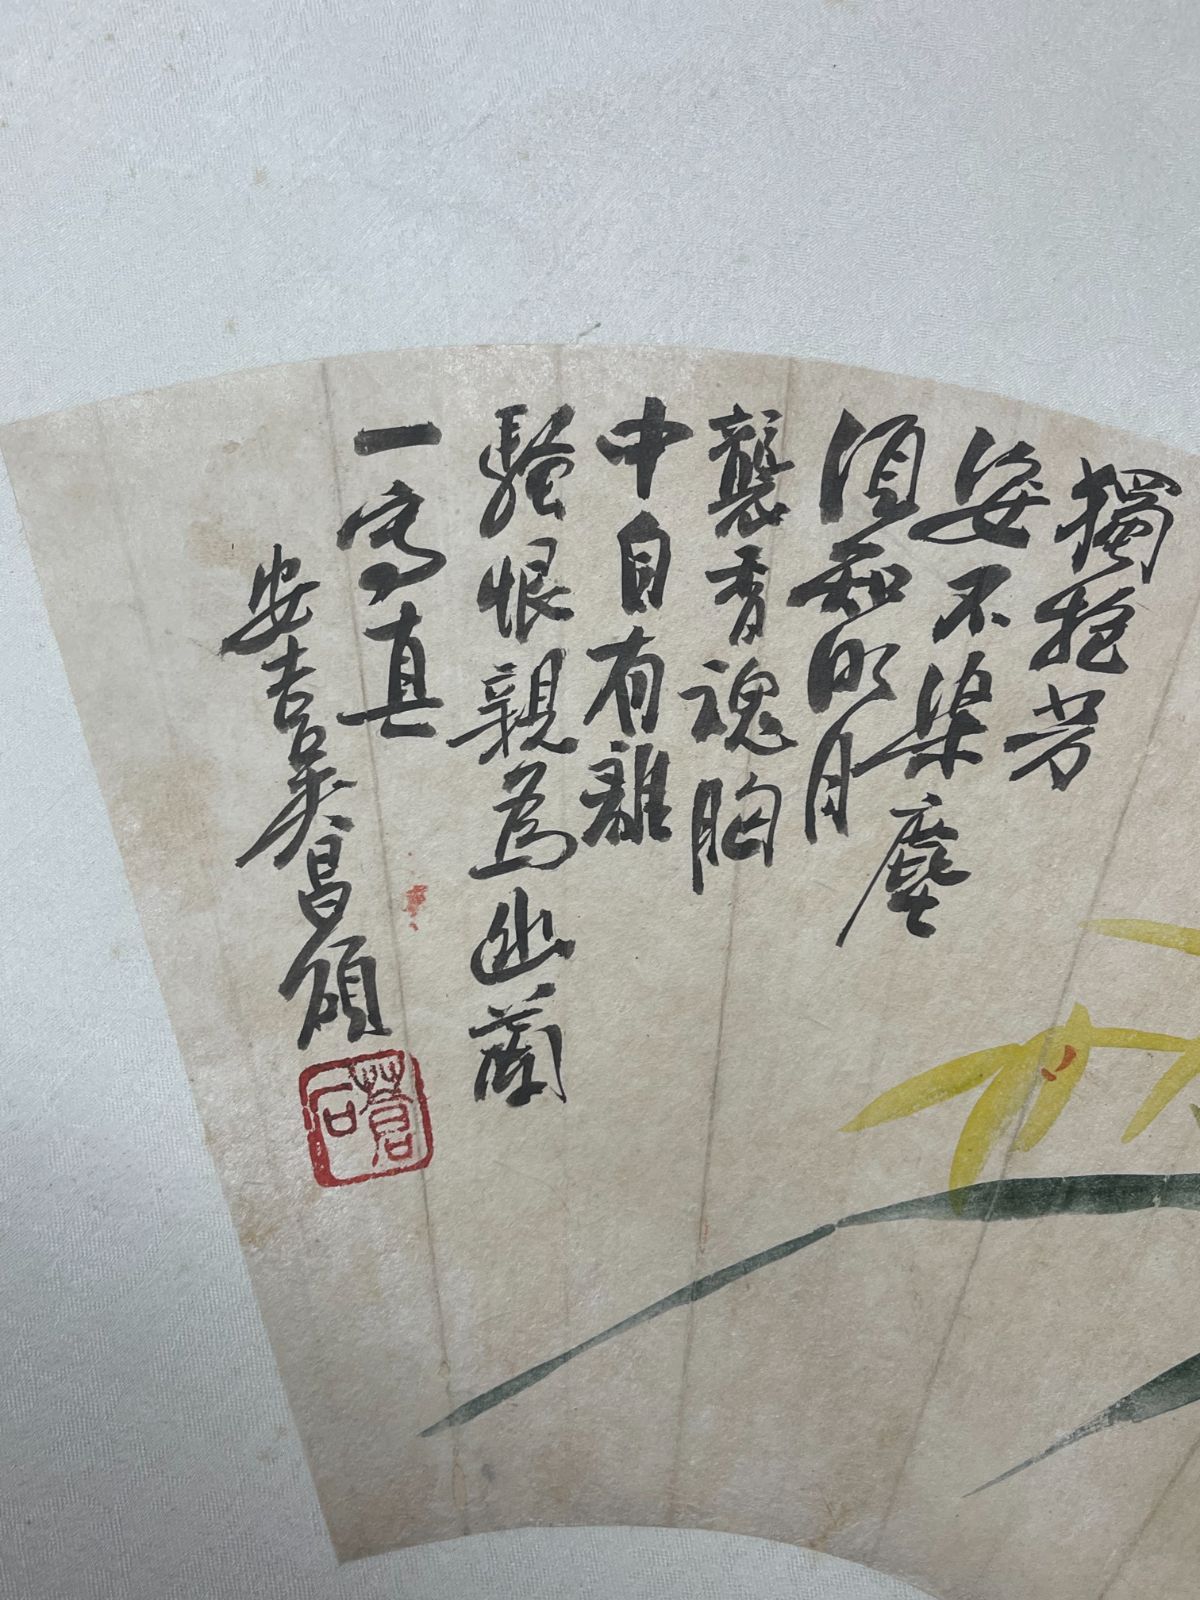 獨抱芳
姿不染塵
須知明月
襲香魂胸
中自有離
騷恨親為幽蘭
一寫真
安吉吳昌碩
蒼石